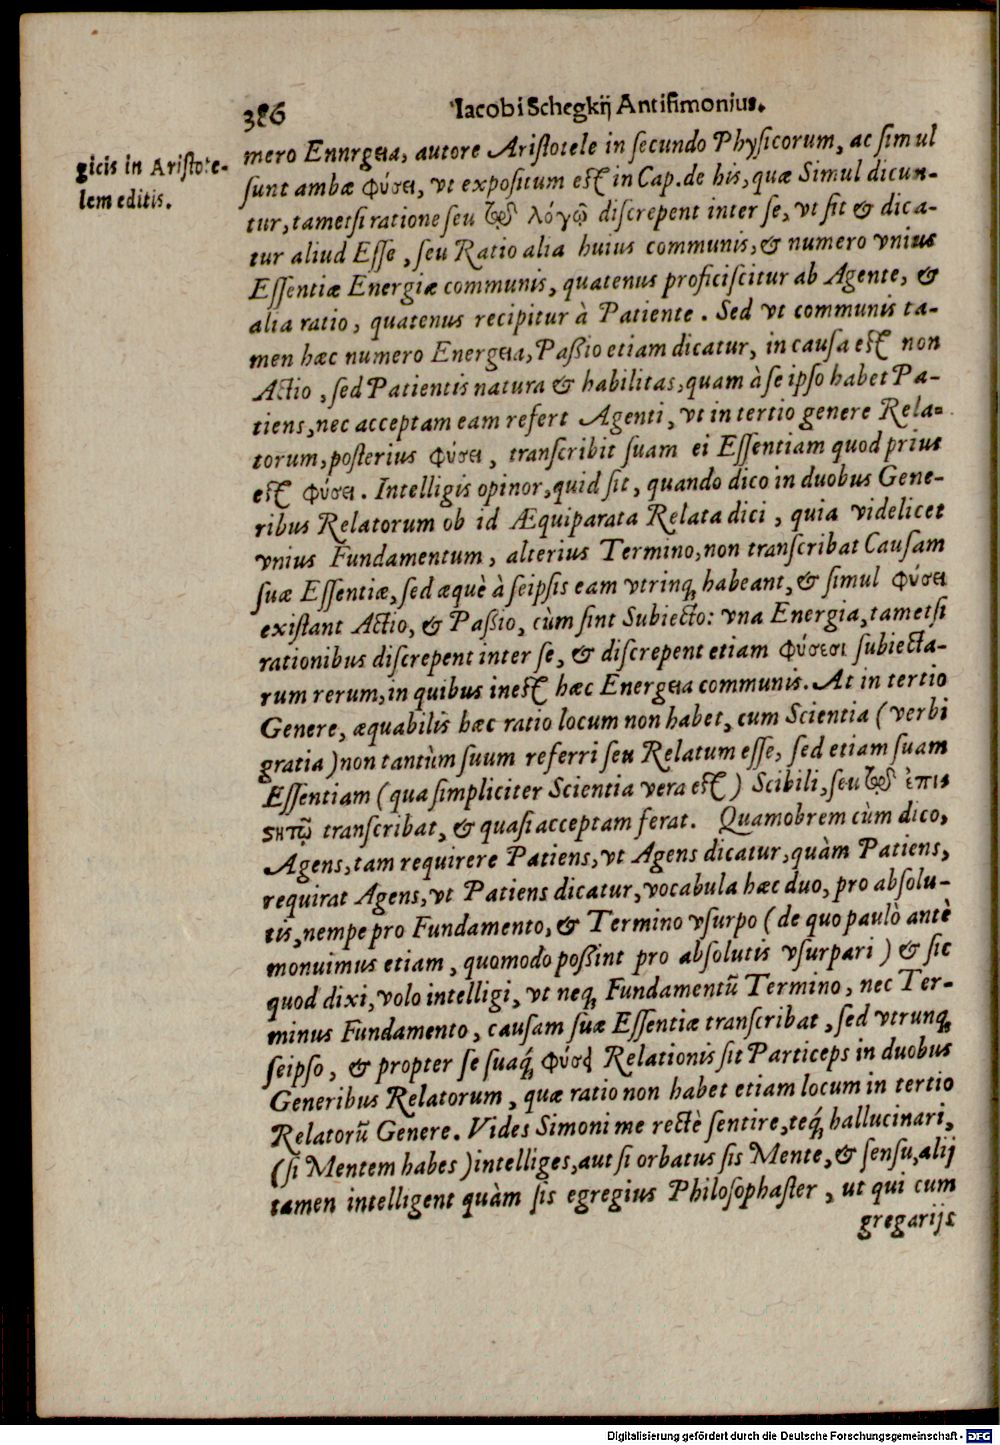 386
Iacobi Schegkij Antisimonius.
gicis in Aristote-
lem editis.
mero Ennrgεια, autore Aristotele in secundo Physicorum, ac simul
sunt ambæ φύσει, vt expositum est in Cap. de his, quæ Simul dicun-
tur, tametsi ratione seu τῷ λόγῳ discrepent inter se, vt sit & dica-
tur aliud Esse, seu Ratio alia huius communis, & numero vnius
Essentiæ Energiæ communis, quatenus proficiscitur ab Agente, &
alia ratio, quatenus recipitur à Patiente. Sed vt communis ta-
men hæc numero Energεια, Paßio etiam dicatur, in causa est non
Actio, sed Patientis natura & habilitas, quam à se ipso habet Pa-
tiens, nec acceptam eam refert Agenti, vt in tertio genere Rela-
torum, posterius φύσει, transcribit suam ei Essentiam quod prius
est φύσει. Intelligis opinor, quid sit, quando dico in duobus Gene-
ribus Relatorum ob id Æquiparata Relata dici, quia videlicet
vnius Fundamentum, alterius Termino, non transcribat Causam
suæ Essentiæ, sed æquè à seipsis eam vtrinq; habeant, & simul φύσει
existant Actio, & Paßio, cùm sint Subiecto: vna Energia, tametsi
rationibus discrepent inter se, & discrepent etiam φύσεσι subiecta-
rum rerum, in quibus inest hæc Energεια communis. At in tertio
Genere, æquabilis hæc ratio locum non habet, cum Scientia (verbi
gratia) non tantùm suum referri seu Relatum esse, sed etiam suam
Essentiam (qua simpliciter Scientia vera est) Scibili, seu τῷ ἐπις
ητῷ transcribat, & quasi acceptam ferat. Quamobrem cùm dico,
Agens, tam requirere Patiens, vt Agens dicatur, quàm Patiens,
requirat Agens, vt Patiens dicatur, vocabula hæc duo, pro absolu-
tis, nempe pro Fundamento, & Termino vsurpo (de quo paulò antè
monuimus etiam, quomodo poßint pro absolutis vsurpari) & sic
quod dixi, volo intelligi, vt neq; Fundamentũ Termino, nec Ter-
minus Fundamento, causam suæ Essentiæ transcribat, sed vtrunq;
seipso, & propter se suaq́; φύσει Relationis sit Particeps in duobus
Generibus Relatorum, quæ ratio non habet etiam locum in tertio
Relatorũ Genere. Vides Simoni me rectè sentire, teq́; hallucinari,
(si Mentem habes) intelliges, aut si orbatus sis Mente, & sensu, alij
tamen intelligent quàm sis egregius Philosophaster, ut qui cum
gregarijs
Digitalisierung gefördert durch die Deutsche Forschungsgemeinschaft - DFG